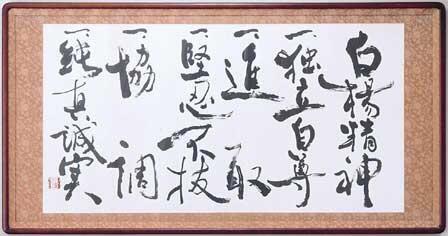 白楊精神
一独立自尊
一進取
一堅忍不抜
一協調
一純真誠実